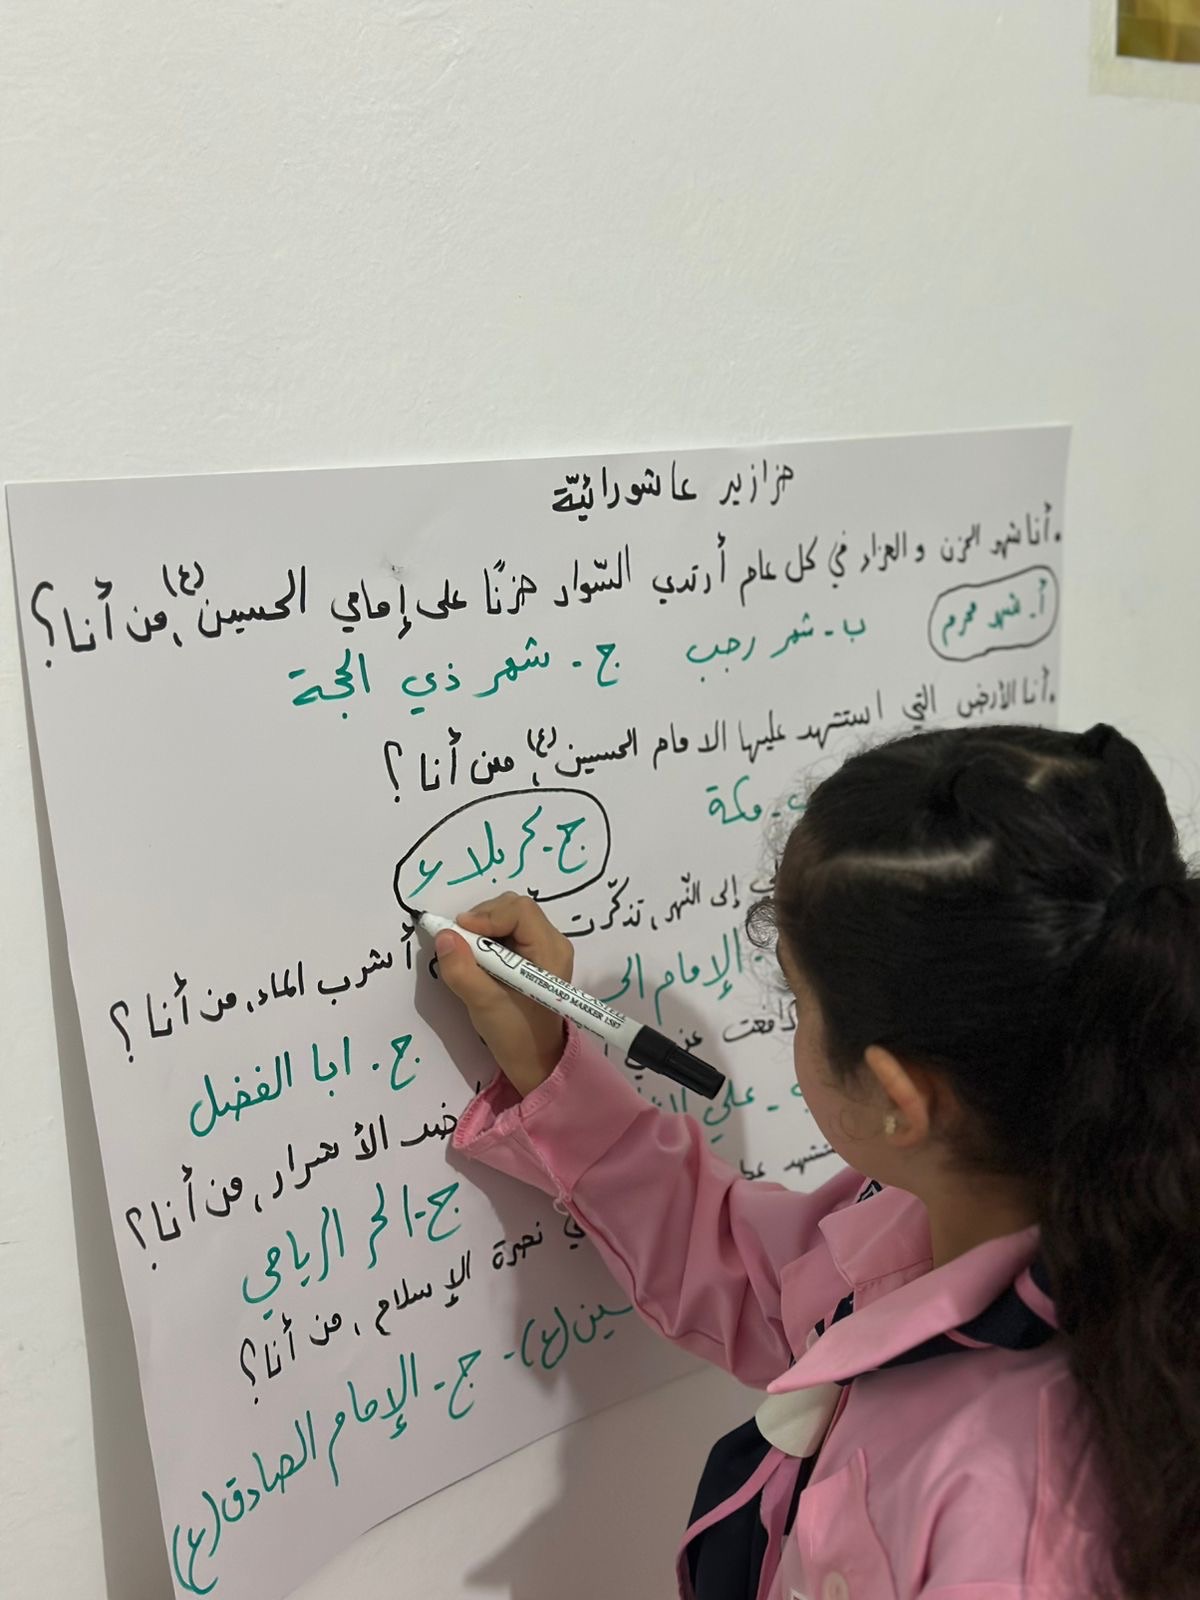 حزازير عاشورائيّة
.أنا شهر الحزن و العزاء في كل عام أرتدي السّواد حزنًا على إمامي الحسين (ع)، من أنا؟
أ. شهر محرم ب - شهر رجب ج - شهر ذي الحجة
.أنا الأرض التي استشهد عليها الامام الحسين (ع)، من أنا؟
مكة ج - كربلاء
إلى النّهر، تذكّرت أشرب الماء، من أنا؟
الإمام ج . ابا الفضل
دافعت ضد الأشرار، من أنا؟
علي ج - الحر الرياحي
نصرة الإسلام، من أنا؟
(ع) - ج - الإمام الصادق (ع)
WHITEBOARD MARKER 1587